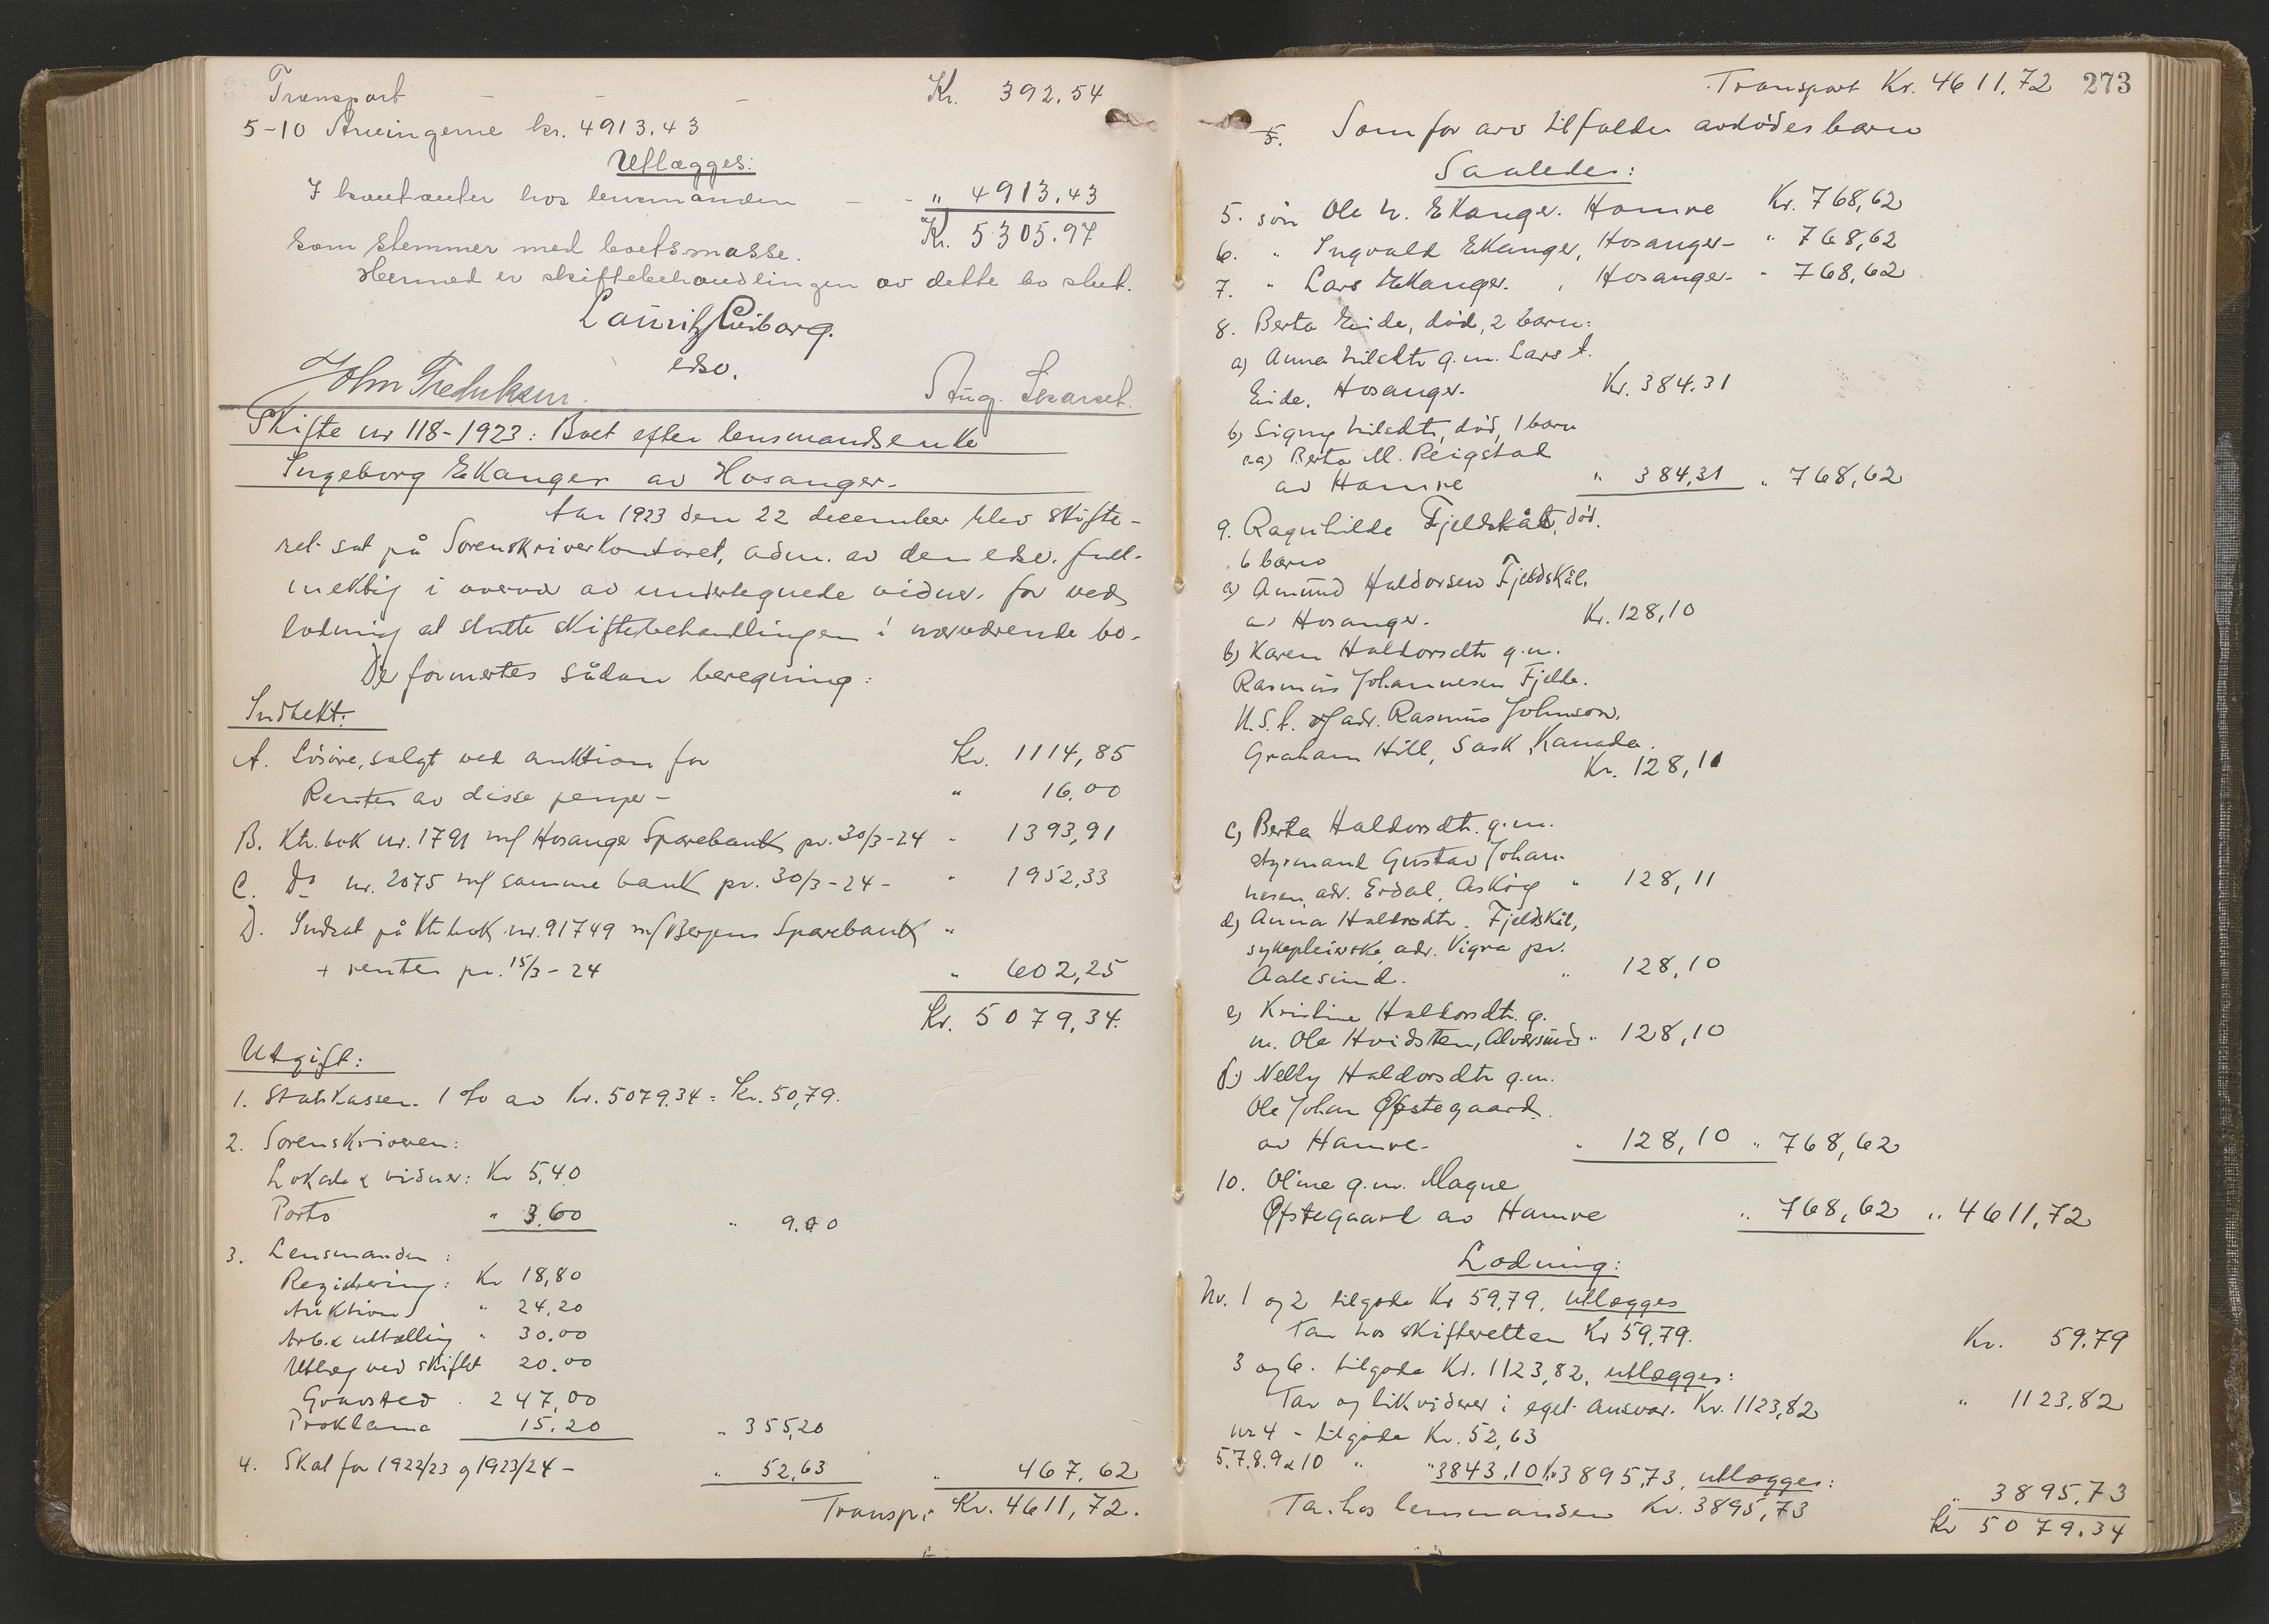 Transport - - - Kr. 392.54
5-10 Arvingerne kr. 4913.43
Utlægges:
I kontanter hos lensmanden - - " 4913.43
som stemmer med boets masse. Kr. 5305.97
Hermed er skiftebehandlingen av dette bo slut.
Lauritz
edsv.
John Fredriksen. Aug.
Skifte nr 118-1923: Boet efter lensmandsenke
Ingeborg Ekanger av Hosanger.
Aar 1923 den 22 december blev skifte-
ret sat på Sorenskriverkontoret, adm. av den edsv. full-
mektig i overvær av undertegnede vidner, for ved
lodning at slutte skiftebehandlingen i nærværende bo.
De formertes sådan beregning:
Indtekt:
A. Løsøre, solgt ved auktion for Kr. 1114,85
Renter av disse penger - " 16.00
B. Ktr. bok nr. 1791 m/ Hosanger Sparebank pr. 30/3-24 - 1393,91
C. Do nr. 2075 m/ samme bank pr. 30/3-24 - " 1952,33
D. Indsat på Ktr. bok nr. 91749 m/ Bergens Sparebank "
+ renter pr. 15/3-24 " 602,25
Kr. 5079,34.
Utgift:
1. Statskassen. 1 % av Kr. 5079.34 = Kr. 50,79.
2. Sorenskriveren:
Lokale & vidner: Kr 5,40
Porto " 3.60 " 9.00
3. Lensmanden:
Registrering: Kr 18,80
Auktion " 24.20
Arb. & uttælling " 30.00
Utlæg ved skiftet 20.00
Gravsted. 247,00
Proklama 15.20 " 355,20
4. Skat for 1922/23 og 1923/24 - " 52,63 " 467.62
Transp: Kr. 4611,72.
Transport Kr. 4611,72 273
5. Som for arv tilfalder avdødes barn
Saaledes:
5. søn Ole N. Ekanger. Hamre Kr. 768,62
6. " Ingvald Ekanger, Hosanger - " 768,62
7. " Lars Ekanger. , Hosanger - " 768,62
8. Berta Eide, død, 2 barn:
a) Anna Nilsdtr g.m. Lars A.
Eide, Hosanger. Kr. 384.31
b) Signy Nilsdtr, død, 1 barn
aa) Berta M. Reigstad
av Hamre " 384,31 " 768,62
9. Ragnhilde Fjeldskål, død.
6 barn
a) Amund Haldorsen Fjeldskål,
av Hosanger. Kr. 128,10
b) Karen Haldorsdtr g.m.
Rasmus Johannesen Fjelde.
U.S.A. adr. Rasmus Johnson,
Graham Hill, Sask, Kanada.
Kr. 128,11
c) Berta Haldorsdtr. g.m.
styrmand Gustav Johan-
nesen, adr. Erdal, Askøy " 128,11
d) Anna Haldorsdtr. Fjeldskål,
sykepleierske, adr. Vigra pr.
Aalesund. " 128,10
e) Kristine Haldorsdtr. g.
m. Ole Hvidsten, Alversund " 128,10
f.) Nelly Haldorsdtr g.m.
Ole Johan Øfstegaard
av Hamre - " 128,10 " 768,62
10. Oline g.m. Magne
Øfstegaard av Hamre " 768,62 " 4611,72
Lodning:
Nr. 1 og 2 tilgode Kr 59,79, utlægges
Tar hos skifteretten Kr 59.79. Kr. 59.79
3 og 6. tilgode Kr. 1123,82, utlægges:
Tar og likviderer i eget ansvar. Kr. 1123,82 " 1123.82
nr 4 - tilgode Kr. 52,63
5.7.8.9 & 10 " " 3843.10 Kr 3895,73, utlægges:
Tar hos lensmanden Kr. 3895,73 " 3895.73
Kr 5079.34